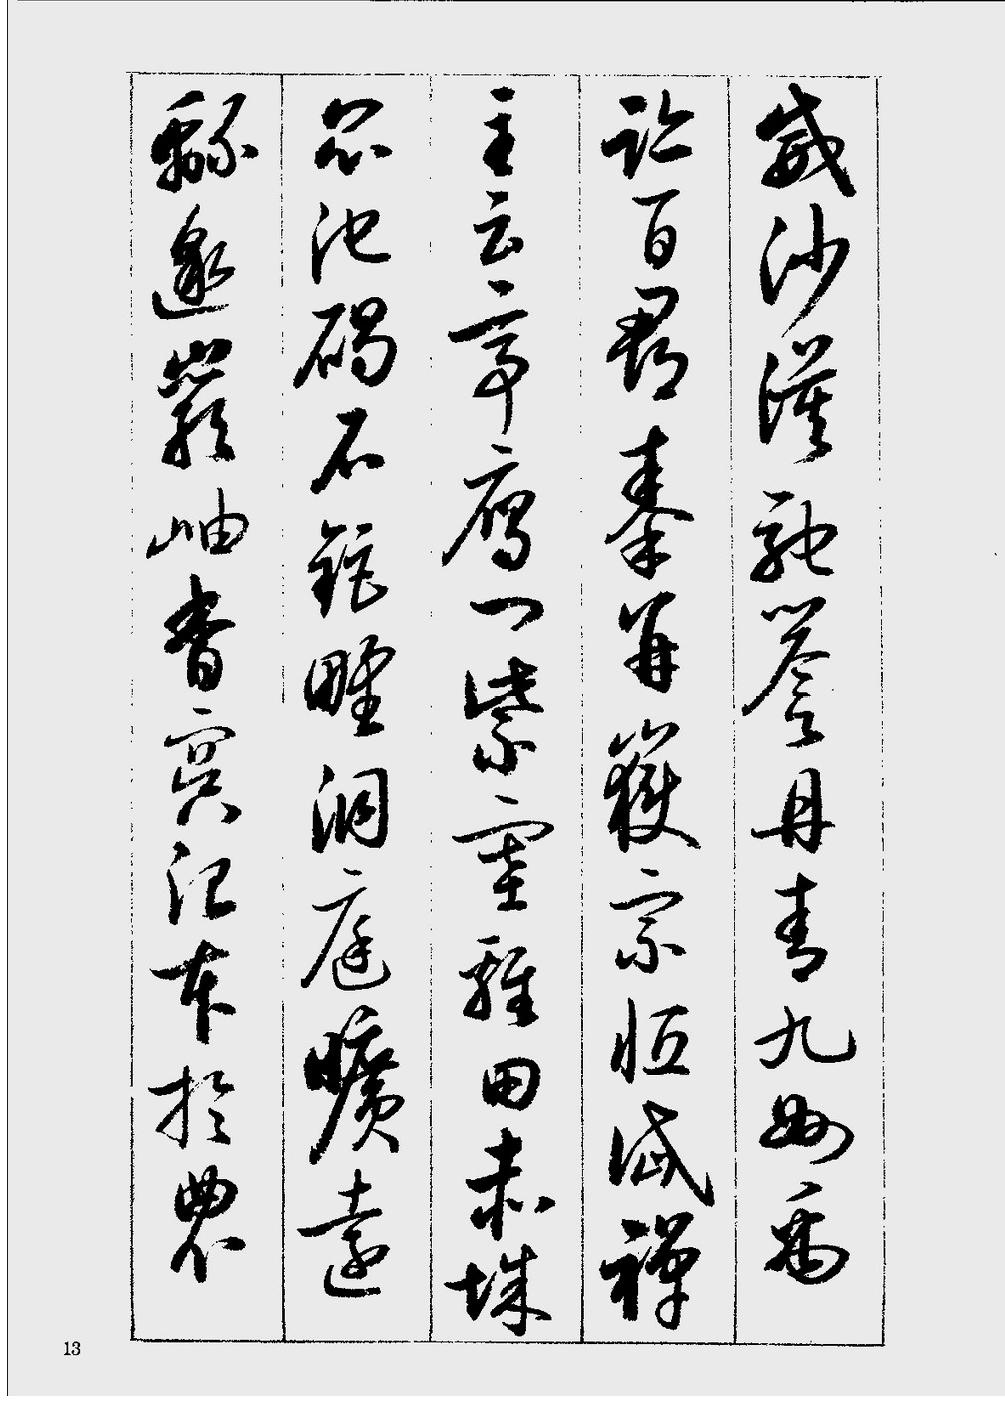 威沙漠馳譽丹青九州禹
跡百郡秦并嶽宗恒岱禪
主云亭鴈門紫塞雞田赤城
昆池碣石鉅野洞庭曠遠
緜邈巖岫杳冥治本於農
13